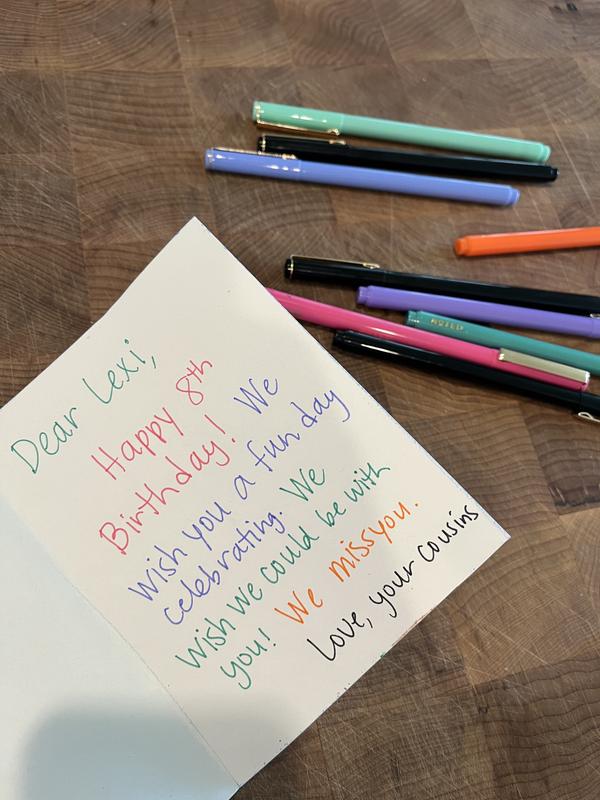 Dear Lexi,
Happy 8th
Birthday! We
wish you a fun day
celebrating. We
wish we could be with
you! We miss you.
Love, your cousins
NOTED